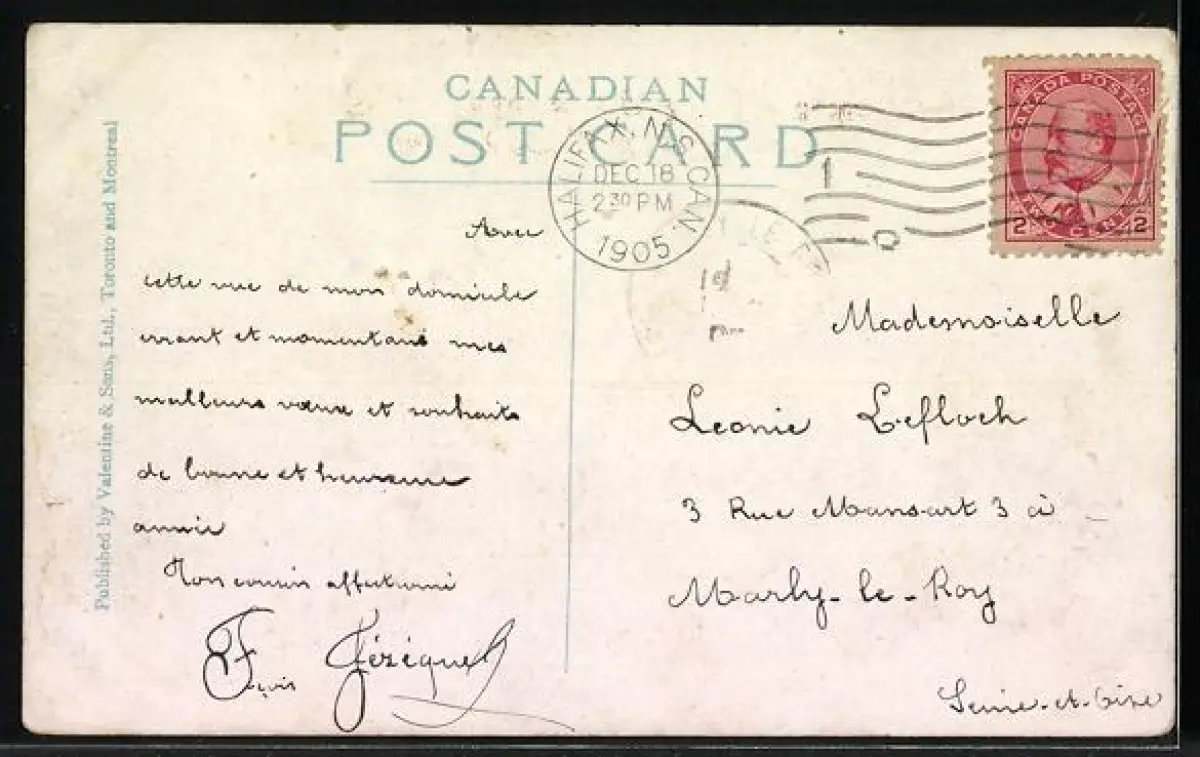 CANADIAN
POST CARD
Published by Valentine & Sons, Ltd., Toronto and Montreal
HALIFAX, N.S. CAN.
DEC 18
2 30 PM
1905
1
CANADA POSTAGE
2 CENTS 2
Avec
cette vue de mon domicile
errant et momentané mes
meilleurs vœux et souhaits
de bonne et heureuse
année
Ton cousin affectionné
Fçois Jézéquel
Mademoiselle
Leonie Lefloch
3 Rue Mansart 3 à
Marly-le-Roy
Seine-et-Oise